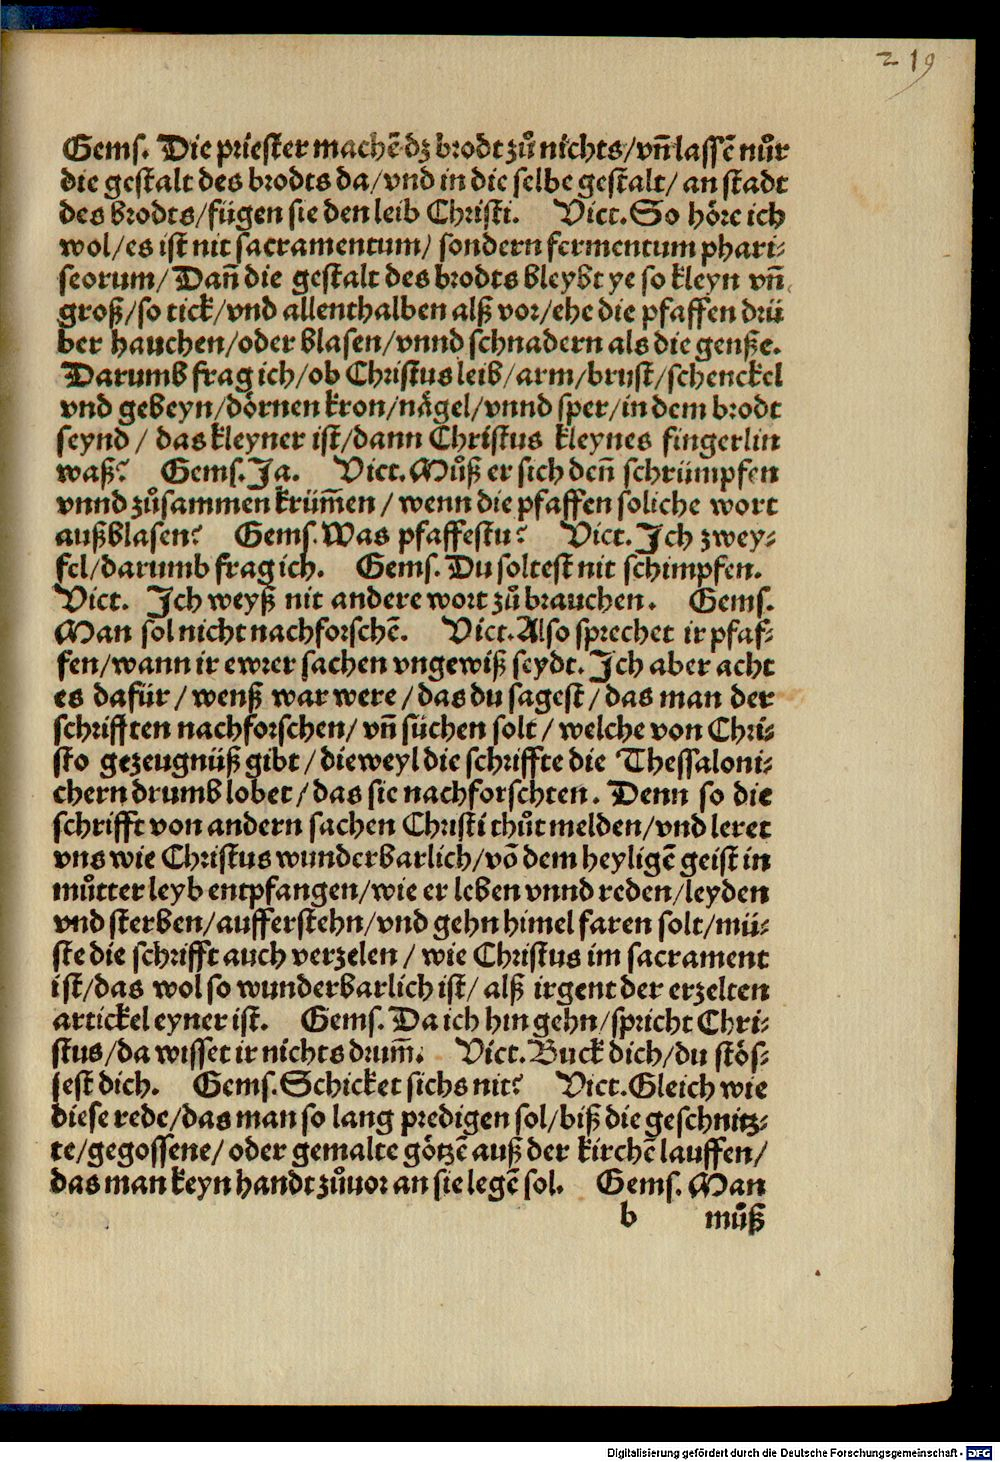 219
Gems. Die priester machē dz brodt zů nichts/vñ lassē nůr
die gestalt des brodts da/vnd in die selbe gestalt/ an stadt
des brodts/fügen sie den leib Christi. Vict. So höre ich
wol/es ist nit sacramentum/ sondern fermentum phari⸗
seorum/ Dañ die gestalt des brodts bleybt ye so kleyn vñ
groß/so tick/vnd allenthalben alß vor/ehe die pfaffen drü
ber hauchen/oder blasen/vnnd schnadern als die genße.
Darumb frag ich/ob Christus leib/arm/brust/schenckel
vnd gebeyn/dörnen kron/nägel/vnnd sper/in dem brodt
seynd / das kleyner ist/dann Christus kleynes fingerlin
waß? Gems. Ja. Vict. Můß er sich deñ schrümpfen
vnnd zůsammen krüm̃en / wenn die pfaffen soliche wort
außblasen? Gems. Was pfaffestu? Vict. Ich zwey⸗
fel/darumb frag ich. Gems. Du soltest nit schimpfen.
Vict. Ich weyß nit andere wort zů brauchen. Gems.
Man sol nicht nachforschē. Vict. Also sprechet ir pfaf⸗
fen/wann ir ewrer sachen vngewiß seydt. Ich aber acht
es dafür / wenß war were / das du sagest / das man der
schrifften nachforschen/ vñ süchen solt / welche von Chri⸗
sto gezeugnüß gibt / dieweyl die schriffte die Thessaloni⸗
chern drumb lobet / das sie nachforschten. Denn so die
schrifft von andern sachen Christi thůt melden/vnd leret
vns wie Christus wunderbarlich/vō dem heyligē geist in
můtter leyb entpfangen/wie er leben vnnd reden/leyden
vnd sterben/aufferstehn/vnd gehn himel faren solt/mü⸗
ste die schrifft auch verzelen / wie Christus im sacrament
ist/das wol so wunderbarlich ist/ alß irgent der erzelten
artickel eyner ist. Gems. Da ich hin gehn/spricht Chri⸗
stus/da wisset ir nichts drum̃. Vict. Buck dich/du stös⸗
sest dich. Gems. Schicket sichs nit? Vict. Gleich wie
diese rede/das man so lang predigen sol/biß die geschnitz⸗
te/gegossene/ oder gemalte götzē auß der kirchē lauffen/
das man keyn handt zůuor an sie legē sol. Gems. Man
b můß
Digitalisierung gefördert durch die Deutsche Forschungsgemeinschaft - DFG